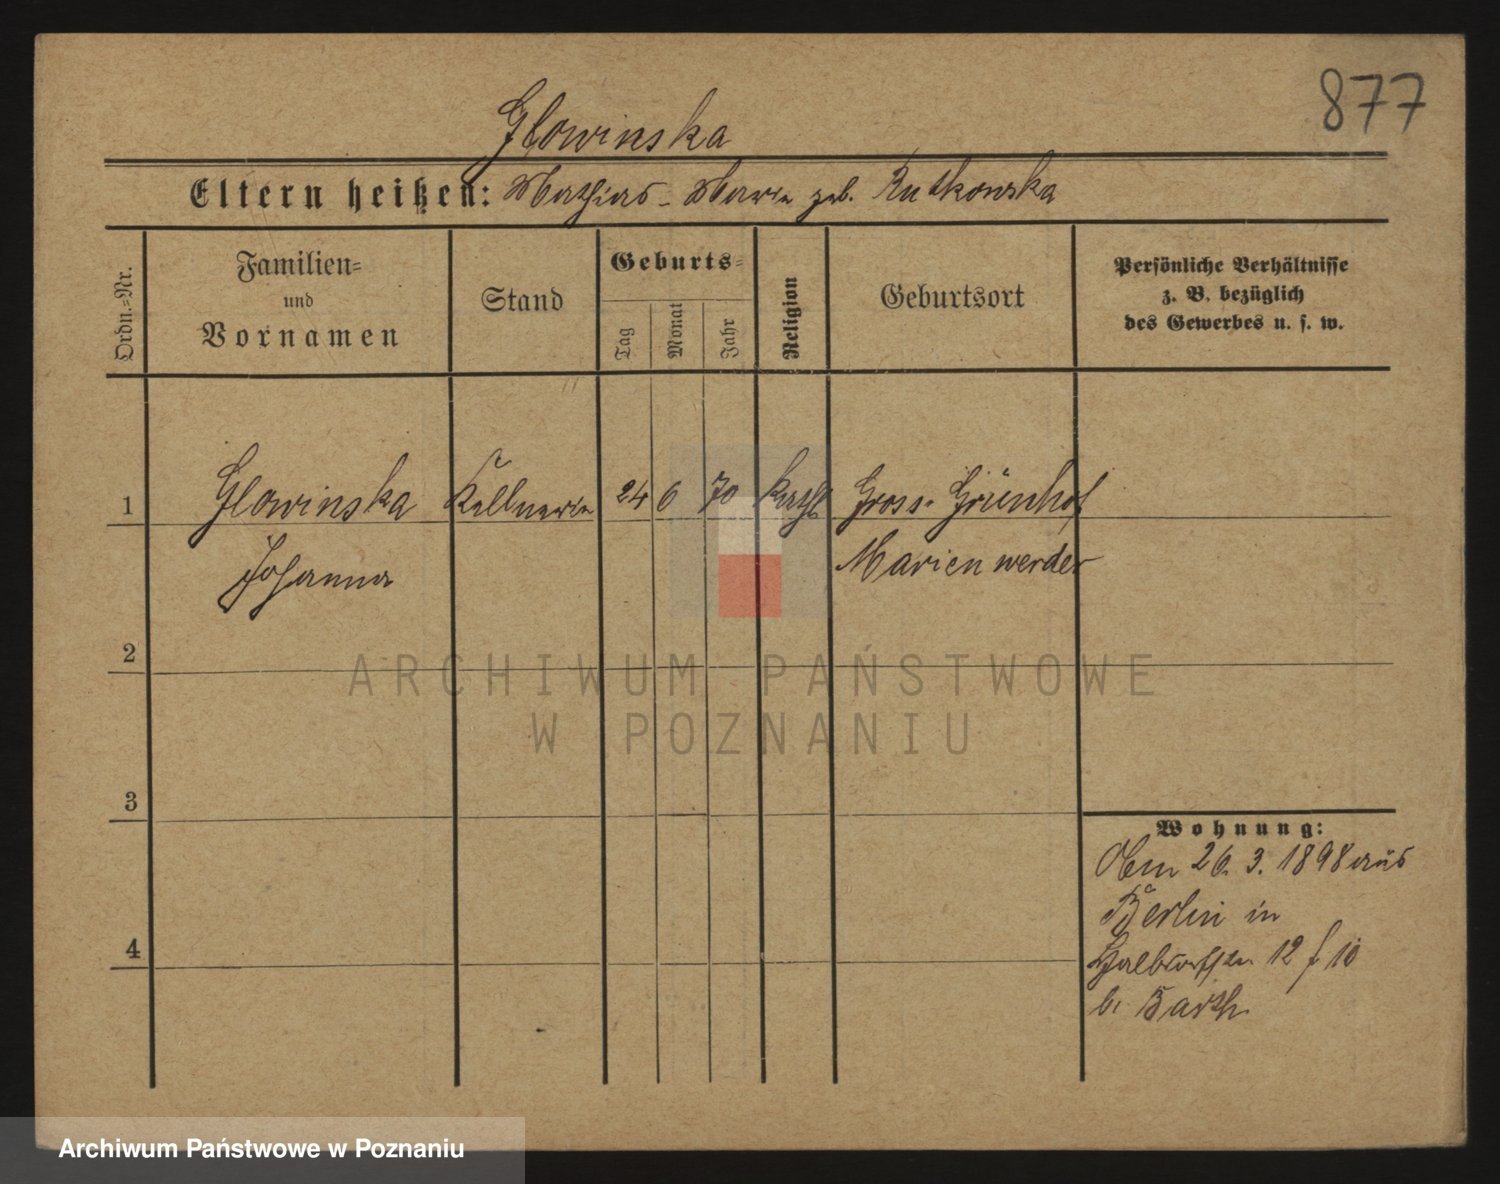 877
Glowinska
Eltern heißen: Mathias - Marie geb. Rutkowska
Ordn.=Nr.
Familien=
und
Vornamen
Stand
Geburts=
Tag
Monat
Jahr
Religion
Geburtsort
Persönliche Verhältnisse
z. B. bezüglich
des Gewerbes u. s. w.
1 Glowinska Kellnerin 24 6 70 kath Gross. Grünhof
Johanna Marienwerder
2
ARCHIWUM PAŃSTWOWE
W POZNANIU
3
Wohnung:
26. 3. 1898 aus
Berlin in
4 12 10
b. Barth
Archiwum Państwowe w Poznaniu